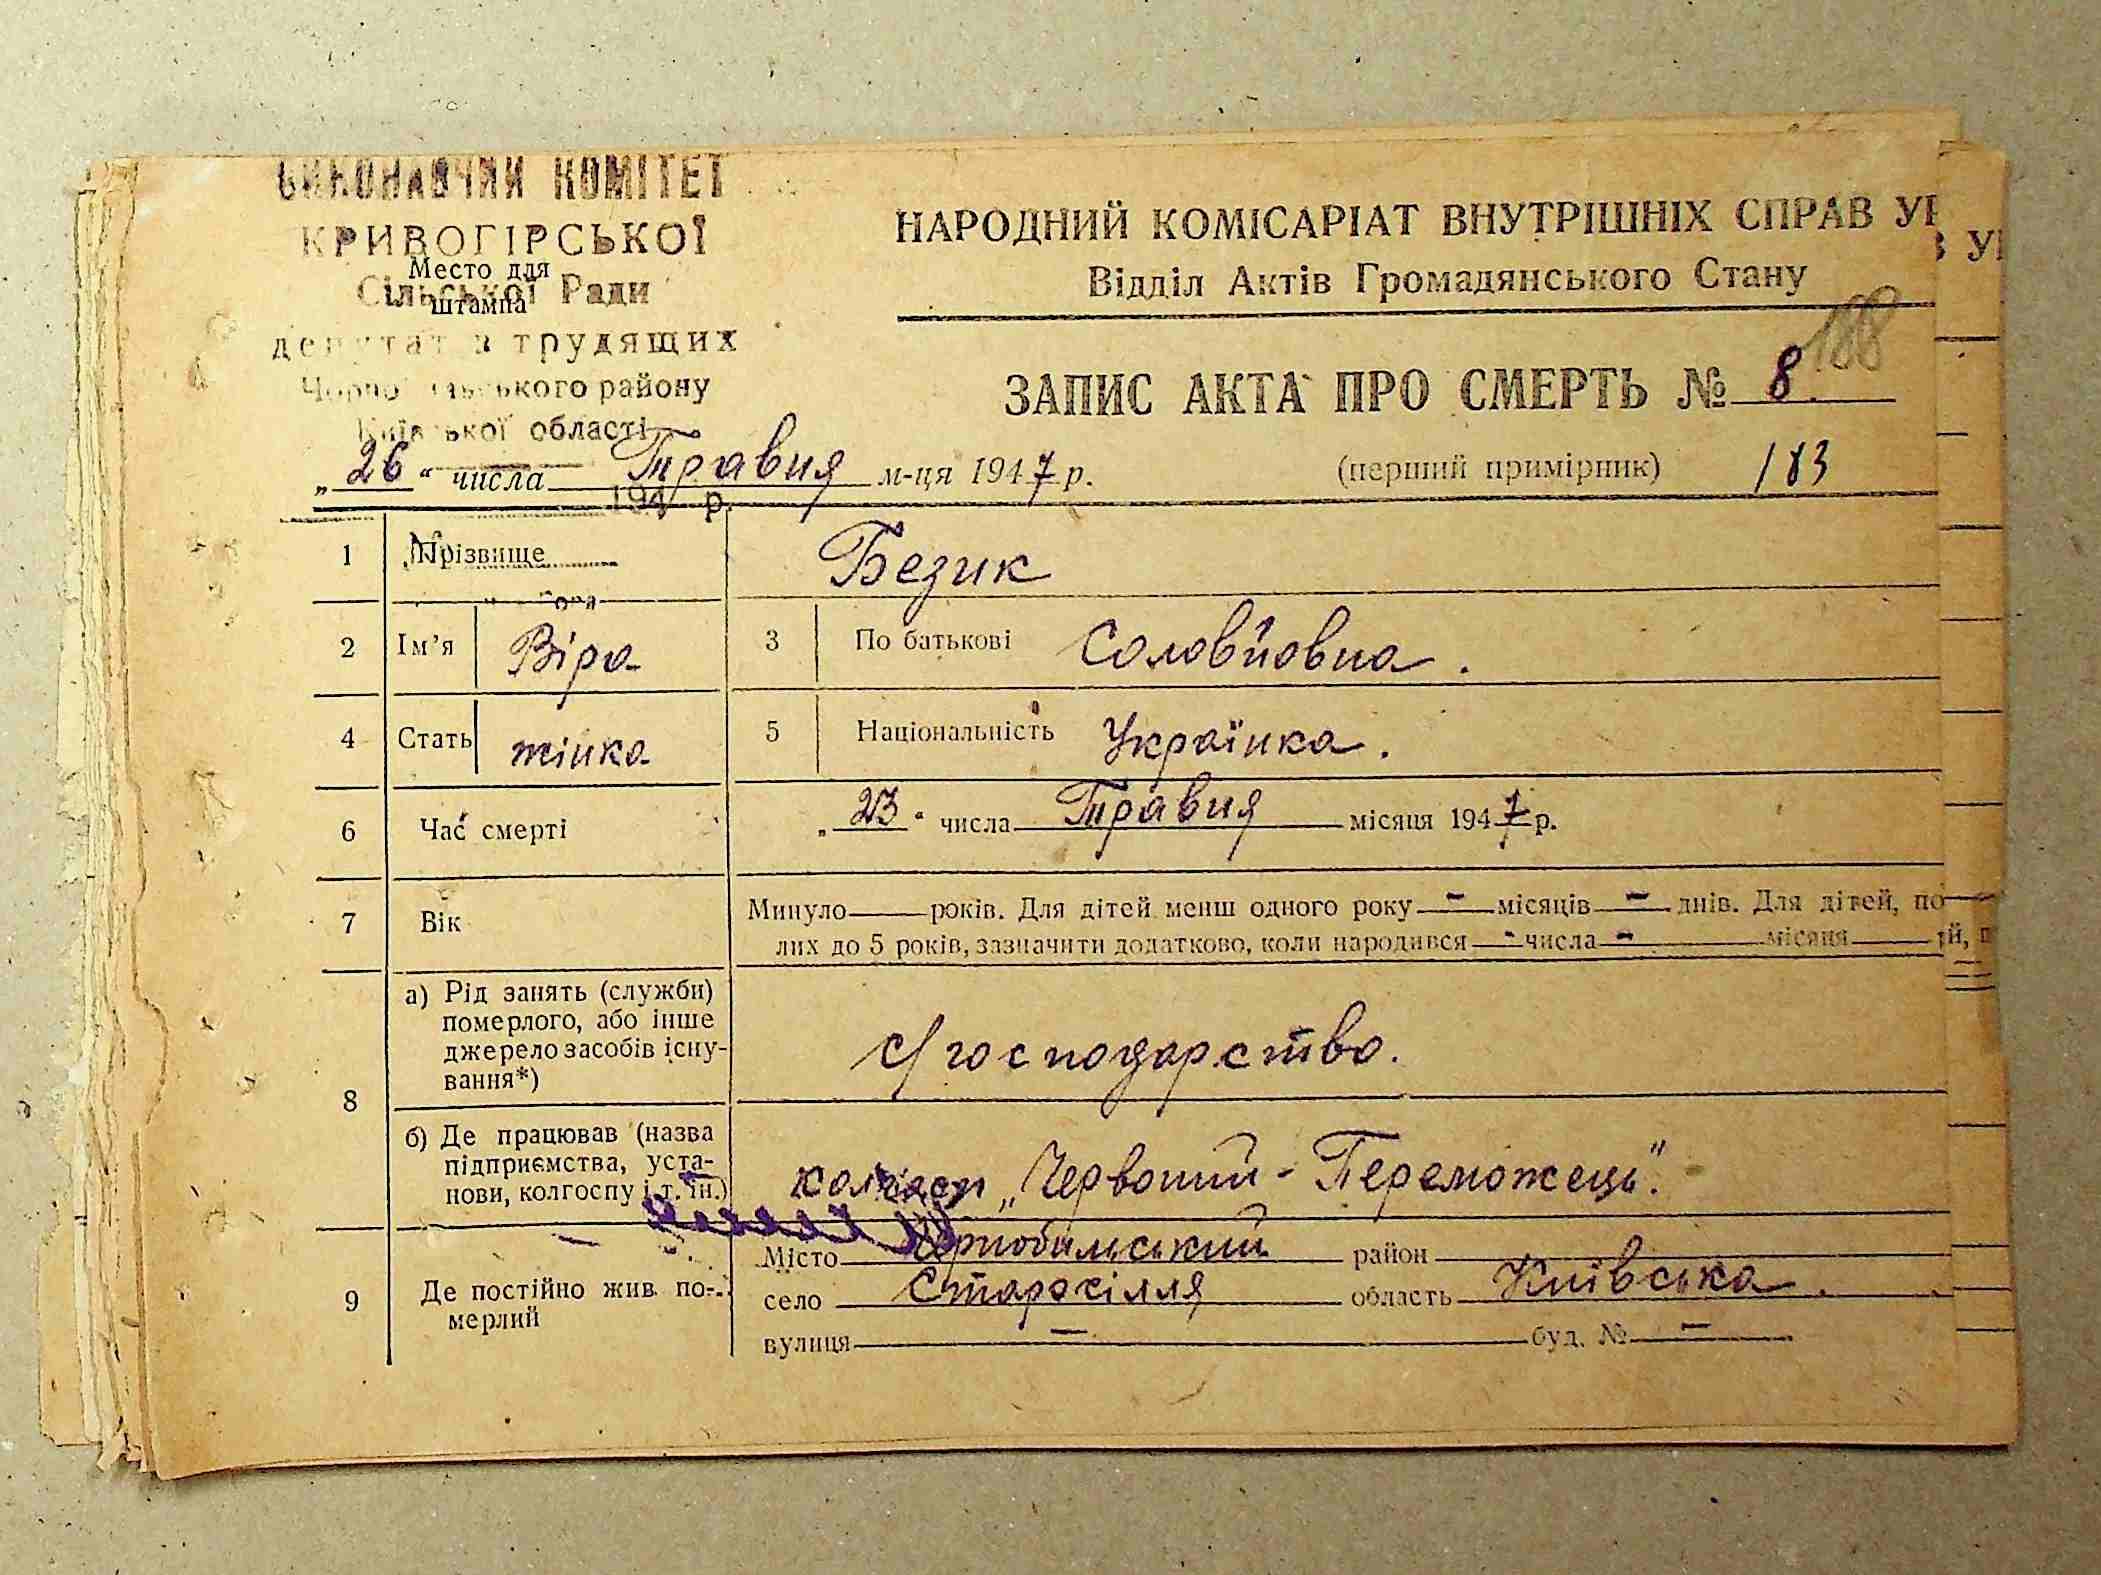 ВИКОНАВЧИЙ КОМІТЕТ
КРИВОГІРСЬКОЇ
Место для
штампа
Сільської Ради
депутатів трудящих
району
Київської області
194 р.
НАРОДНИЙ КОМІСАРІАТ ВНУТРІШНІХ СПРАВ УР
В УР
Відділ Актів Громадянського Стану
188
ЗАПИС АКТА ПРО СМЕРТЬ № 8.
„26“ числа Травня м-ця 1947 р.
(перший примірник) 183
1 Прізвище Безик
2 Ім'я Віра 3 По батькові Соловйовна.
4 Стать жінка 5 Національність Українка.
6 Час смерті „23“ числа Травня місяця 1947 р.
7 Вік Минуло років. Для дітей менш одного року – місяців – днів. Для дітей, по
лих до 5 років, зазначити додатково, коли народився - числа - місяця
8 а) Рід занять (служби)
померлого, або інше
джерело засобів існу-
вання*)
с/господарство.
б) Де працював (назва
підприємства, уста-
нови, колгоспу і т. ін.)
колгосп „Червоний - Переможець“.
9 Де постійно жив по-
мерлий
Місто Чорнобильський район
село Старосілля область Київська.
вулиця — буд. № —